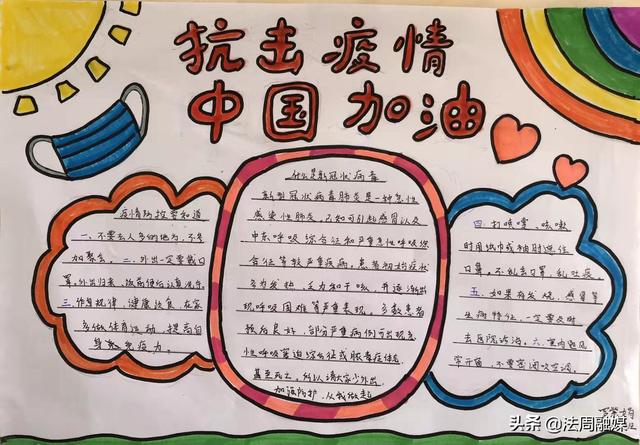 抗击疫情
中国加油
疫情防控要知道
一、不要去人多的地方,不参
加聚会。二、外出一定要戴口
罩,外出归来,
三、作息规律,健康饮食,在家
多做体育运动,提高自
身免疫力。
什么是新冠状病毒
新型冠状病毒肺炎是一种急性
感染性肺炎,已知可引起感冒以及
中东呼吸综合征和严重急性呼吸综
合征等较严重疾病,患者初始症状
多为发热、乏力和干咳,并逐渐出
现呼吸困难等严重表现,多数患者
预后良好,部分严重病例可出现急
性呼吸窘迫综合征或脓毒症休克
甚至死亡,所以请大家少外出,
加强防护,从我做起
四、打喷嚏、咳嗽
时用纸巾或袖肘遮住
口鼻,不乱丢口罩,乱吐痰
五、如果有发烧、感冒等
生病特征,一定要及时
去医院诊治。六、室内通风
常开窗,不要密闭吹空调。
头条@法周融媒